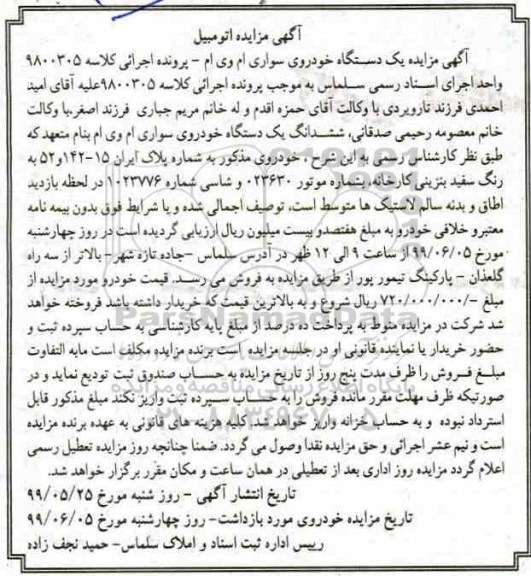 آگهی مزایده اتومبیل
آگهی مزایده یک دستگاه خودروی سواری ام وی ام - پرونده اجرائی کلاسه ۹۸۰۰۳۰۵
واحد اجرای اسناد رسمی سلماس به موجب پرونده اجرائی کلاسه ۹۸۰۰۳۰۵علیه آقای امید
احمدی فرزند تاروبردی با وکالت آقای حمزه اقدم و له خانم مریم جباری فرزند اصغر،با وکالت
خانم معصومه رحیمی صدقانی، ششدانگ یک دستگاه خودروی سواری ام وی ام بنام متعهد که
طبق نظر کارشناس رسمی به این شرح ، خودروی مذکور به شماره پلاک ایران ۱۵-۱۴۲و۵۲ به
رنگ سفید بنزینی کارخانه، بشماره موتور ۰۲۳۶۳۰ و شاسی شماره ۱۰۲۳۷۷۶ در لحظه بازدید
اطاق و بدنه سالم لاستیک ها متوسط است، توصیف اجمالی شده و با شرائط فوق بدون بیمه نامه
معتبرو خلافی خودرو به مبلغ هفتصدو بیست میلیون ریال ارزیابی گردیده است در روز چهارشنبه
مورخ ۹۹/۰۶/۰۵ از ساعت ۹ الی ۱۲ ظهر در آدرس سلماس -جاده تازه شهر- بالاتر از سه راه
گلعذان - پارکینگ تیمور پور از طریق مزایده به فروش می رسد. قیمت خودرو مورد مزایده از
مبلغ -/۷۲۰/۰۰۰/۰۰۰ ریال شروع و به بالاترین قیمت که خریدار داشته باشد فروخته خواهد
شد شرکت در مزایده منوط به پرداخت ده درصد از مبلغ پایه کارشناسی به حساب سپرده ثبت و
حضور خریدار یا نماینده قانونی او در جلسه مزایده است برنده مزایده مکلف است مابه التفاوت
مبلغ فروش را ظرف مدت پنج روز از تاریخ مزایده به حساب صندوق ثبت تودیع نماید و در
صورتیکه ظرف مهلت مقرر مانده فروش را به حساب سپرده ثبت واریز نکند مبلغ مذکور قابل
استرداد نبوده و به حساب خزانه واریز خواهد شد. کلیه هزینه های قانونی به عهده برنده مزایده
است و نیم عشر اجرائی و حق مزایده نقدا وصول می گردد. ضمنا چنانچه روز مزایده تعطیل رسمی
اعلام گردد مزایده روز اداری بعد از تعطیلی در همان ساعت و مکان مقرر برگزار خواهد شد.
تاریخ انتشار آگهی - روز شنبه مورخ ۹۹/۰۵/۲۵
تاریخ مزایده خودروی مورد بازداشت- روز چهارشنبه مورخ ۹۹/۰۶/۰۵
رییس اداره ثبت اسناد و املاک سلماس- حمید نجف زاده
ParsNamadData
پایگاه اطلاع رسانی مناقصه و مزایده